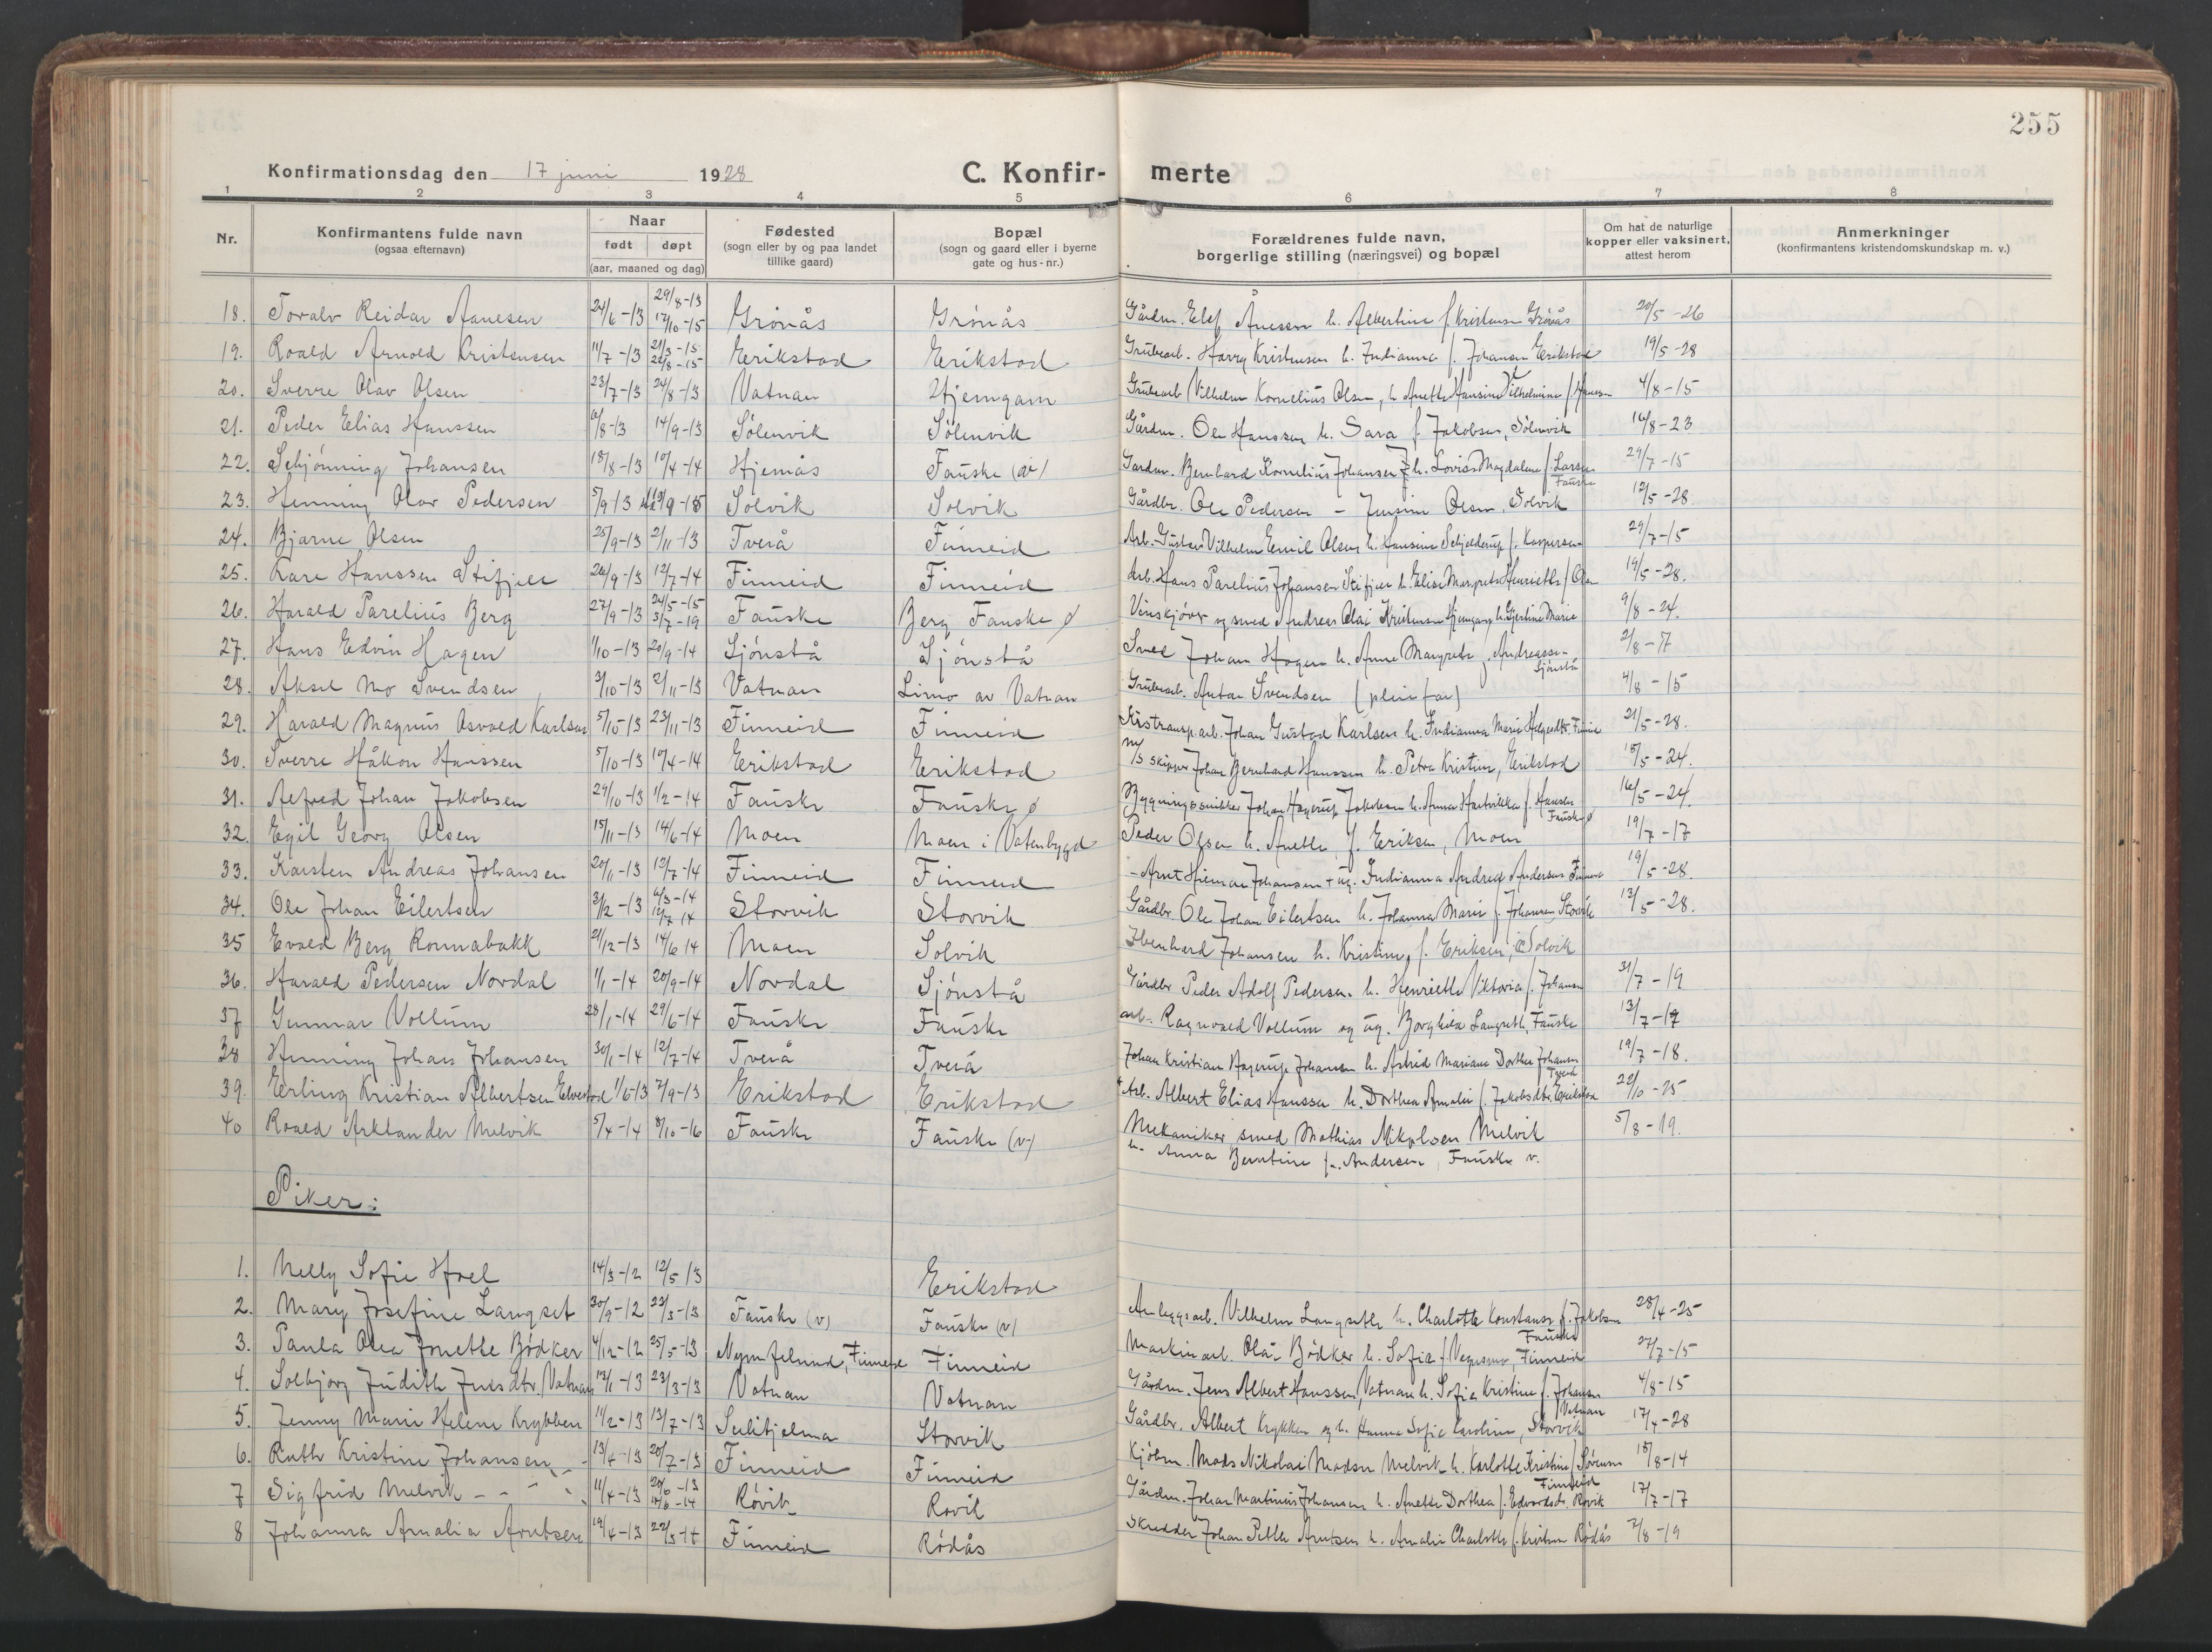 255
Konfirmationsdag den 17 juni 1928
C. Konfir- merte
1 2 3 4 5 6 7 8
Nr.
Konfirmantens fulde navn
(ogsaa efternavn)
Naar
født døpt
(aar, maaned og dag)
Fødested
(sogn eller by og paa landet
tillike gaard)
Bopæl
(sogn og gaard eller i byerne
gate og hus-nr.)
Forældrenes fulde navn,
borgerlige stilling (næringsvei) og bopæl
Om hat de naturlige
kopper eller vaksinert,
attest herom
Anmerkninger
(konfirmantens kristendomskundskap m. v.)
18. Toralv Reidar Aanesen 24/6-13 29/8-13 17/10-15 Grønås Grønås Gårdm. Elef Ånessen h. Albertine f. Kristensen Grønås 20/5-26
19. Roald Arnold Kristensen 11/7-13 21/3-15 22/8-15 Erikstad Erikstad Grubearb. Harry Kristensen h. Indianna f. Johansen Erikstad 19/5-28
20. Sverre Olav Olsen 23/7-13 24/8-13 Vatnan Hjemgam Grubearb Vilhelm Kornelius Olsen, h. Anette Hansine Vilhelmine f. Hansen 4/8-15
21. Peder Elias Hanssen 6/8-13 14/9-13 Sölenvik Sölenvik Gårdm. Ole Hanssen h. Sara f. Jakobsen, Sölenvik 16/8-23
22. Schjønning Johansen 18/8-13 10/4-14 Hjemås Fauske Gardm. Bernhard Kornelius Johansen h. Lovise Magdalene f. Larsen Fauske 29/7-15
23. Henning Olav Pedersen 5/9-13 19/9-15 Solvik Solvik Gårdbr. Ole Pedersen - Jensine Olsen, Solvik 12/5-28
24. Bjarne Olsen 25/9-13 2/11-13 Tverå Finneid Arb. Gustav Vilhelm Emil Olsen h. Hansine Schjelderup f. Kaspersen 29/7-15
25. Kåre Hanssen Stifjell 26/9-13 12/7-14 Finneid Finneid Arb. Hans Parelius Johansen Stifjell h. Elise Margrete Henriette f. Olsen 19/5-28.
26. Harald Parelius Berg 27/9-13 24/5-15 3/7-19 Fauske Berg Fauske ø og smed Andreas Olai Kristensen Hjemgang h. Gjertine Marie 9/8-24.
27. Hans Edvin Hagen 1/10-13 20/9-14 Sjønstå Sjønstå Smed Johan Hagen h. Anne Margrete Andreassen Sjønstå 2/8-17
28. Aksel Mo Svendsen 3/10-13 2/11-13 Vatnan Limo av Vatnan Grubearb. Anton Svendsen (pleiefar) 4/8-15
29. Harald Magnus Osvald Karlsen 5/10-13 23/11-13 Finneid Finneid Johan Gustav Karlsen h. Indianna Marie Finneid 21/5-28.
30. Sverre Håkon Hanssen 5/10-13 10/4-14 Erikstad Erikstad M/S skipper Johan Bernhard Hanssen h. Petra Kristine, Erikstad 18/5-24.
31. Alfred Johan Jakobsen 29/10-13 1/2-14 Fauske Fauske ø Bygningssnikker Johan Hagerup Jakobsen h. Anna Hartvikka f. Hansen Fauske ø 16/5-24.
32. Egil Georg Olsen 15/11-13 14/6-14 Moen Moen i Vatenbygd Peder Olsen h. Anette f. Eriksen, Moen 19/7-17
33. Karsten Andreas Johansen 20/11-13 12/7-14 Finneid Finneid - Arnt Hilmar Johansen + ug. Indianna Andrea Andersen Finneid 19/5-28.
34. Ole Johan Eilertsen 3/12-13 6/3-14 12/7 14 Storvik Storvik Gårdbr. Ole Johan Eilertsen h. Johanna Marie f. Johansen Storvik 13/5-28.
35 Evald Berg Ronnabakk 21/12-13 14/6 14 Moen Solvik Ibenhard Johansen h. Kristine f. Eriksen, Solvik
36. Harald Pedersen Nordal 1/1-14 20/9-14 Nordal Sjønstå Gårdbr Peder Adolf Pedersen h. Henriette Viktoria f. Johansen 31/7-19
37 Gunnar Vollum 28/1-14 29/6-14 Fauske Fauske arb. Ragnvald Vollum og ug. Borghild Langseth, Fauske 13/7-17
38 Henning Johan Johansen 30/1-14 12/7-14 Tverå Tverå Johan Kristian Hagerup Johansen h. Astrid Mariane Dorthea Johansen Tverå 19/7-18.
39. Erling Kristian Albertsen Elvestad 1/6-13 7/9-13 Erikstad Erikstad Arb. Albert Elias Hanssen h. Dorthea Amalie f. Jakobsdtr. Erikstad 22/10-25
40 Roald Arktander Melvik 5/4-14 8/10-16 Fauske Fauske (v) Mekaniker, smed Mathias Nikolsen Melvik
h. Anna Berntine f. Andersen, Fauske v. 5/8-19.
Piker:
1. Nelly Sofie Hoel 14/3-12 12/5 13 Erikstad
2. Mary Josefine Langset 30/9-12 23/3-13 Fauske (v) Fauske (v) Anleggsarb. Vilhelm Langseth h. Charlotte Konstanse f. Jakobsen Fauske 28/4-25
3. Paula Olea Jonette Bødker 4/12-12 25/5-13 Finneid Finneid Maskinarb. Olai Bødker h. Sofie f. Finneid 27/7-15
4. Solbjørg Judith Jensdtr. Vatnan 13/1-13 23/3-13 Vatnan Vatnan Gårdm. Jens Albert Hanssen, Vatnan h. Sofie Kristine f. Johansen Vatnan 4/8-15
5. Jenny Marie Helene Krykken 11/2-13 13/7-13 Sulitjelma Storvik Gårdbr. Albert Krykken og h. Hanna Sofie Karoline, Storvik 17/4-28
6. Ruth Kristine Johansen 13/4-13 20/7-13 Finneid Finneid Kjøbm. Mads Nikolai Madsen Melvik h. Karlotte Kristine f. Sørensen Finneid 18/8-14
7 Sigfrid Melvik 11/4-13 Røvik Røvik Gårdm. Johan Martinius Johansen h. Anette Dorthea f. Edvardsdr. Røvik 17/7-17
8 Johanna Amalia Arntsen 19/4-13 Finneid Rödås Skredder Johan Petter Arntsen h. Amalie Charlotte f. Kristensen Rödås 7/8-19